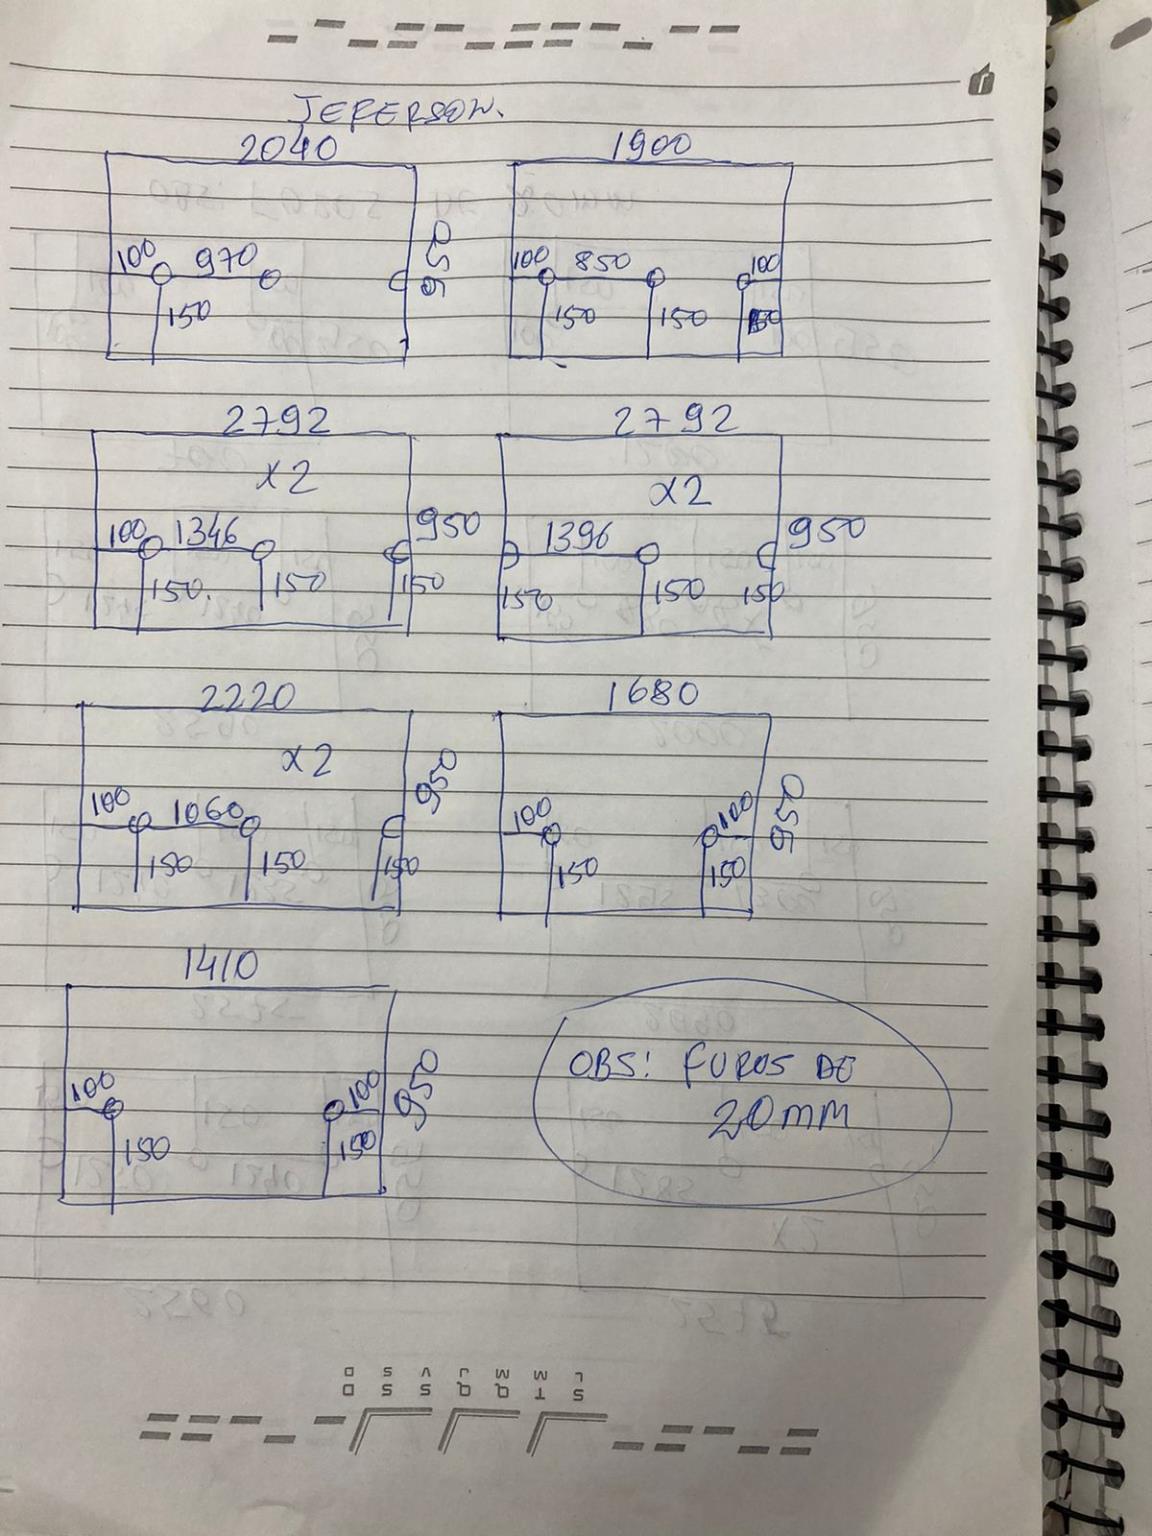 JEFERSON.
2040
100 970
950
150
1900
100 850 100
150 150 150
2792
x2
100 1346
950
150. 150 150
2792
x2
1396
950
150 150 150
2220
x2
100 1060
950
150 150 150
1680
100 100
950
150 150
1410
100 100
950
150 150
OBS: FUROS DE
20MM
D S V J M M L
D S S Q Q T S